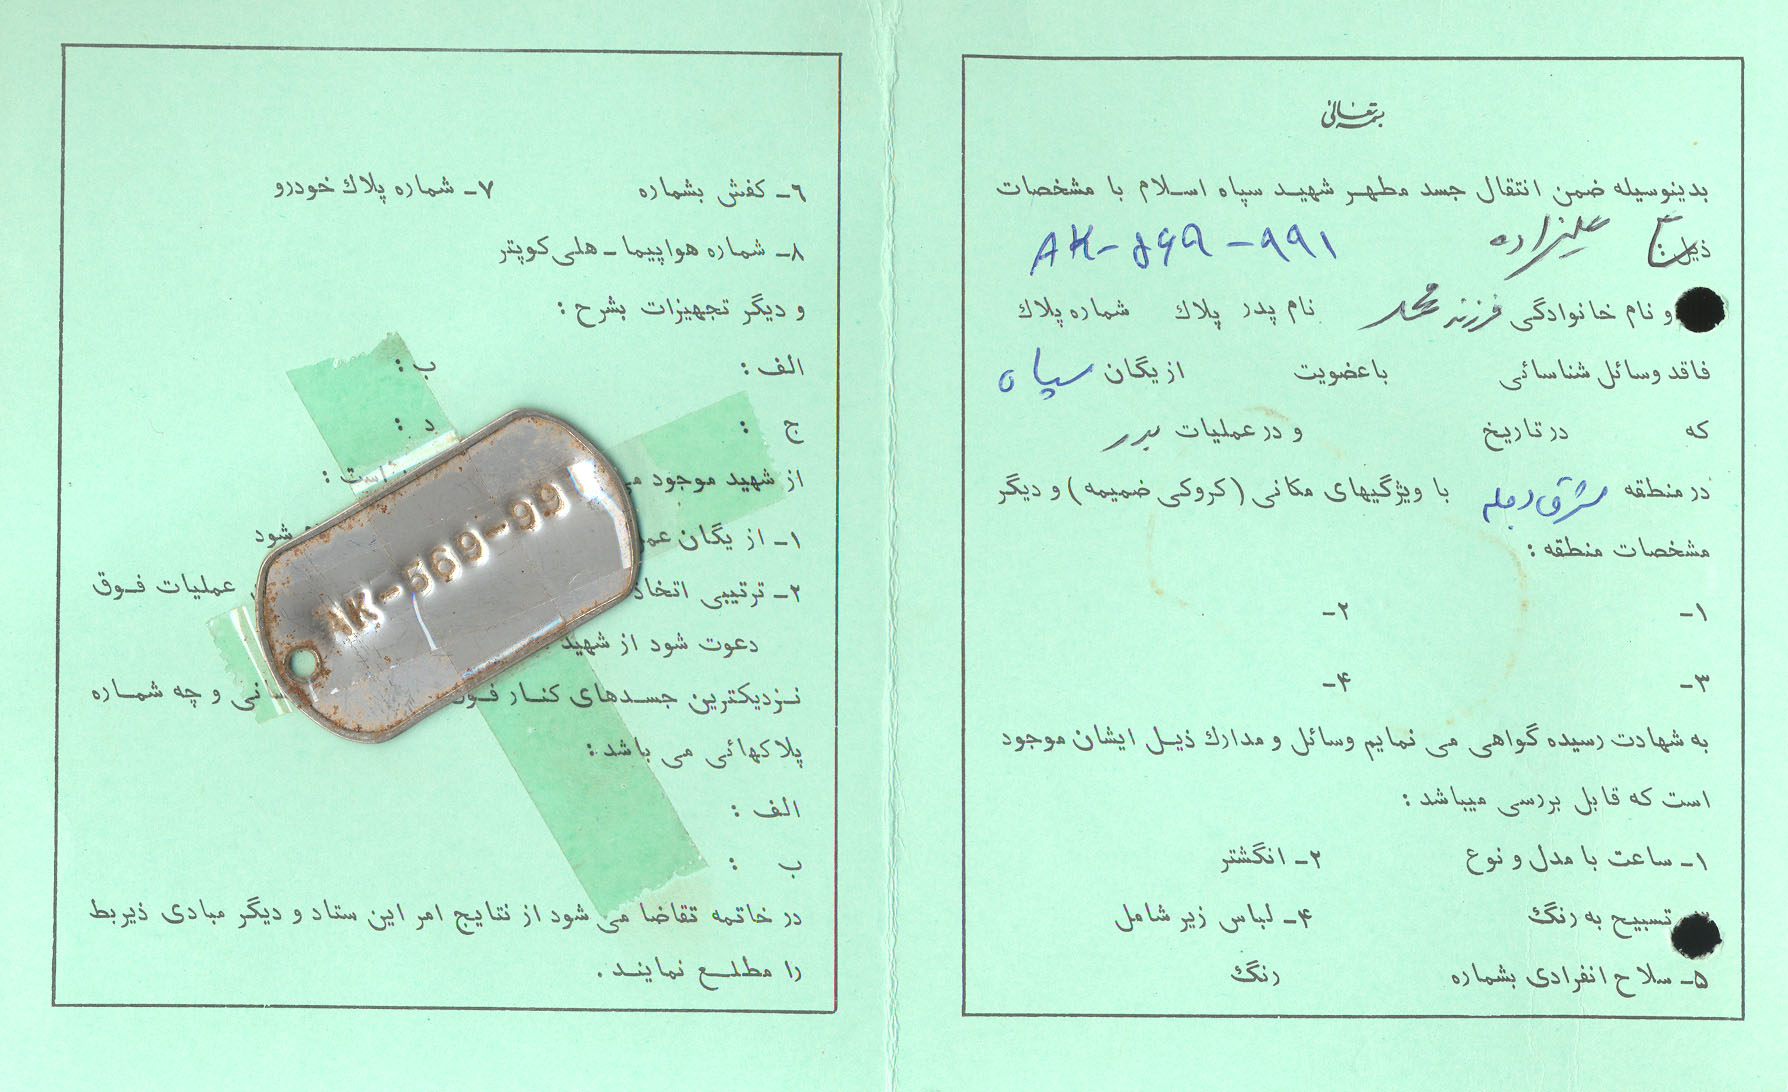 بسمه تعالی
بدینوسیله ضمن انتقال جسد مطهر شهید سپاه اسلام با مشخصات
ذیل علیزاده AK-۵۶۹-۹۹۱
و نام خانوادگی فرزند محمد نام پدر پلاک شماره پلاک
فاقد وسائل شناسائی با عضویت از یگان سپاه
که در تاریخ و در عملیات بدر
در منطقه شرق دجله با ویژگیهای مکانی (کروکی ضمیمه) و دیگر
مشخصات منطقه :
۱- ۲-
۳- ۴-
به شهادت رسیده گواهی می نمایم وسائل و مدارک ذیل ایشان موجود
است که قابل بررسی میباشد :
۱- ساعت با مدل و نوع ۲- انگشتر
تسبیح به رنگ ۴- لباس زیر شامل
۵- سلاح انفرادی بشماره رنگ
۶- کفش بشماره ۷- شماره پلاک خودرو
۸- شماره هواپیما - هلی کوپتر
و دیگر تجهیزات بشرح :
الف : ب :
ج : د :
از شهید موجود است :
۱- از یگان شود
۲- ترتیبی عملیات فوق
دعوت شود از شهید
نزدیکترین جسدهای کنار و چه شماره
پلاکهائی می باشد :
الف :
ب :
در خاتمه تقاضا می شود از نتایج امر این ستاد و دیگر مبادی ذیربط
را مطلع نمایند .
AK-569-991